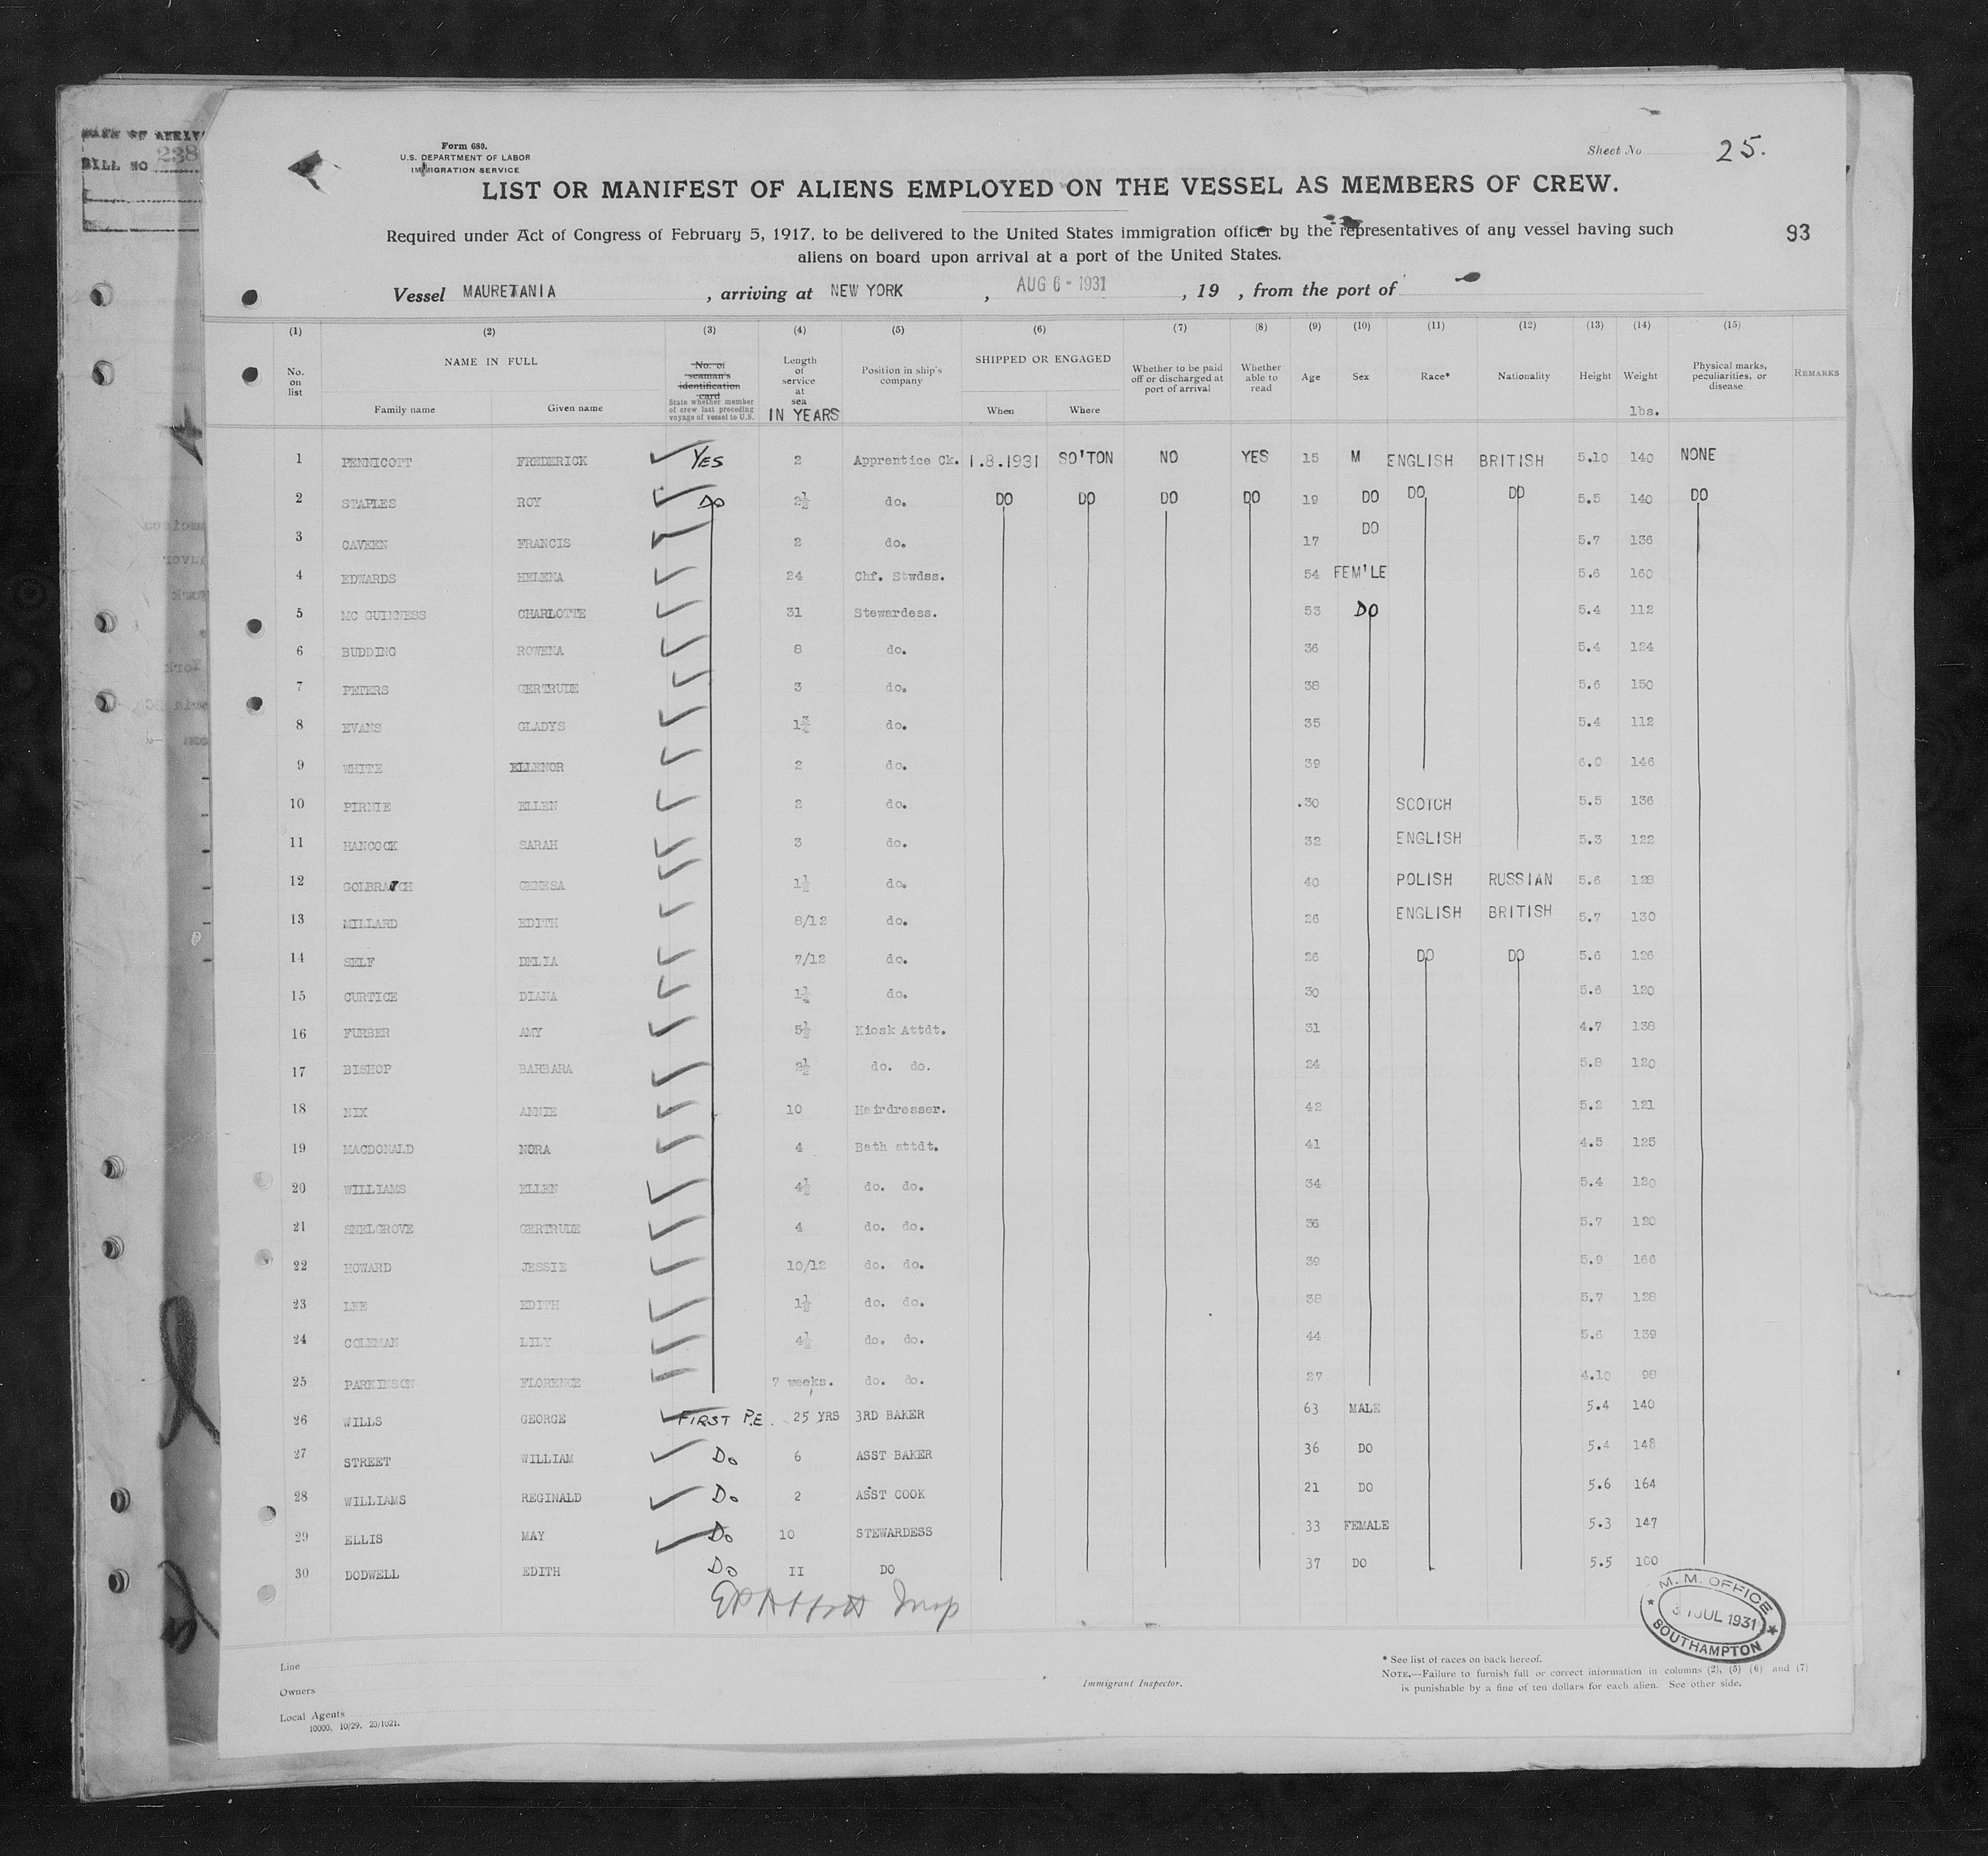 Form 680.
U.S. DEPARTMENT OF LABOR
IMMIGRATION SERVICE
Sheet No. 25.
LIST OR MANIFEST OF ALIENS EMPLOYED ON THE VESSEL AS MEMBERS OF CREW.
93
Required under Act of Congress of February 5, 1917, to be delivered to the United States immigration officer by the representatives of any vessel having such
aliens on board upon arrival at a port of the United States.
Vessel MAURETANIA , arriving at NEW YORK , AUG 6 - 1931 , 19 , from the port of
BILL NO 238
(1) (2) (3) (4) (5) (6) (7) (8) (9) (10) (11) (12) (13) (14) (15)
No. on list
NAME IN FULL
Family name Given name
No. of seaman's identification card
State whether member of crew last preceding voyage of vessel to U.S.
Length of service at sea
IN YEARS
Position in ship's company
SHIPPED OR ENGAGED
When Where
Whether to be paid off or discharged at port of arrival
Whether able to read
Age Sex Race* Nationality Height Weight
lbs.
Physical marks, peculiarities, or disease
REMARKS
1 PENNICOTT FREDERICK YES 2 Apprentice Ck. 1.8.1931 SO'TON NO YES 15 M ENGLISH BRITISH 5.10 140 NONE
2 STAPLES ROY DO 2½ do. DO DO DO DO 19 DO DO DO 5.5 140 DO
3 CAVEEN FRANCIS 2 do. 17 DO 5.7 136
4 EDWARDS HELENA 24 Chf. Stwdss. 54 FEM'LE 5.6 160
5 MC GUINNESS CHARLOTTE 31 Stewardess. 53 DO 5.4 112
6 BUDDING ROWENA 8 do. 36 5.4 124
7 PETERS GERTRUDE 3 do. 38 5.6 150
8 EVANS GLADYS 1¾ do. 35 5.4 112
9 WHITE ELLENOR 2 do. 39 6.0 146
10 PIRNIE ELLEN 2 do. .30 SCOTCH 5.5 136
11 HANCOCK SARAH 3 do. 32 ENGLISH 5.3 122
12 1½ do. 40 POLISH RUSSIAN 5.6 128
13 MILLARD EDITH 8/12 do. 26 ENGLISH BRITISH 5.7 130
14 SELF DELIA 7/12 do. 26 DO DO 5.6 126
15 CURTICE DIANA 1¼ do. 30 5.6 120
16 FURBER AMY 5½ Kiosk Attdt. 31 4.7 138
17 BISHOP BARBARA 2½ do. do. 24 5.8 120
18 NIX ANNIE 10 Hairdresser. 42 5.2 121
19 MACDONALD NORA 4 Bath attdt. 41 4.5 125
20 WILLIAMS ELLEN 4½ do. do. 34 5.4 120
21 SNELGROVE GERTRUDE 4 do. do. 36 5.7 120
22 HOWARD JESSIE 10/12 do. do. 39 5.9 166
23 LEE EDITH 1½ do. do. 38 5.7 128
24 COLEMAN LILY 4½ do. do. 44 5.6 139
25 PARKINSON FLORENCE 7 weeks. do. do. 27 4.10 98
26 WILLS GEORGE FIRST P.E. 25 YRS 3RD BAKER 63 MALE 5.4 140
27 STREET WILLIAM Do 6 ASST BAKER 36 DO 5.4 148
28 WILLIAMS REGINALD Do 2 ASST COOK 21 DO 5.6 164
29 ELLIS MAY Do 10 STEWARDESS 33 FEMALE 5.3 147
30 DODWELL EDITH Do II DO 37 DO 5.5 100
M. M. OFFICE
31 JUL 1931
SOUTHAMPTON
Line
Owners
Local Agents
10000, 10/29. 20/1021.
Immigrant Inspector.
* See list of races on back hereof.
NOTE.—Failure to furnish full or correct information in columns (2), (5) (6) and (7)
is punishable by a fine of ten dollars for each alien. See other side.